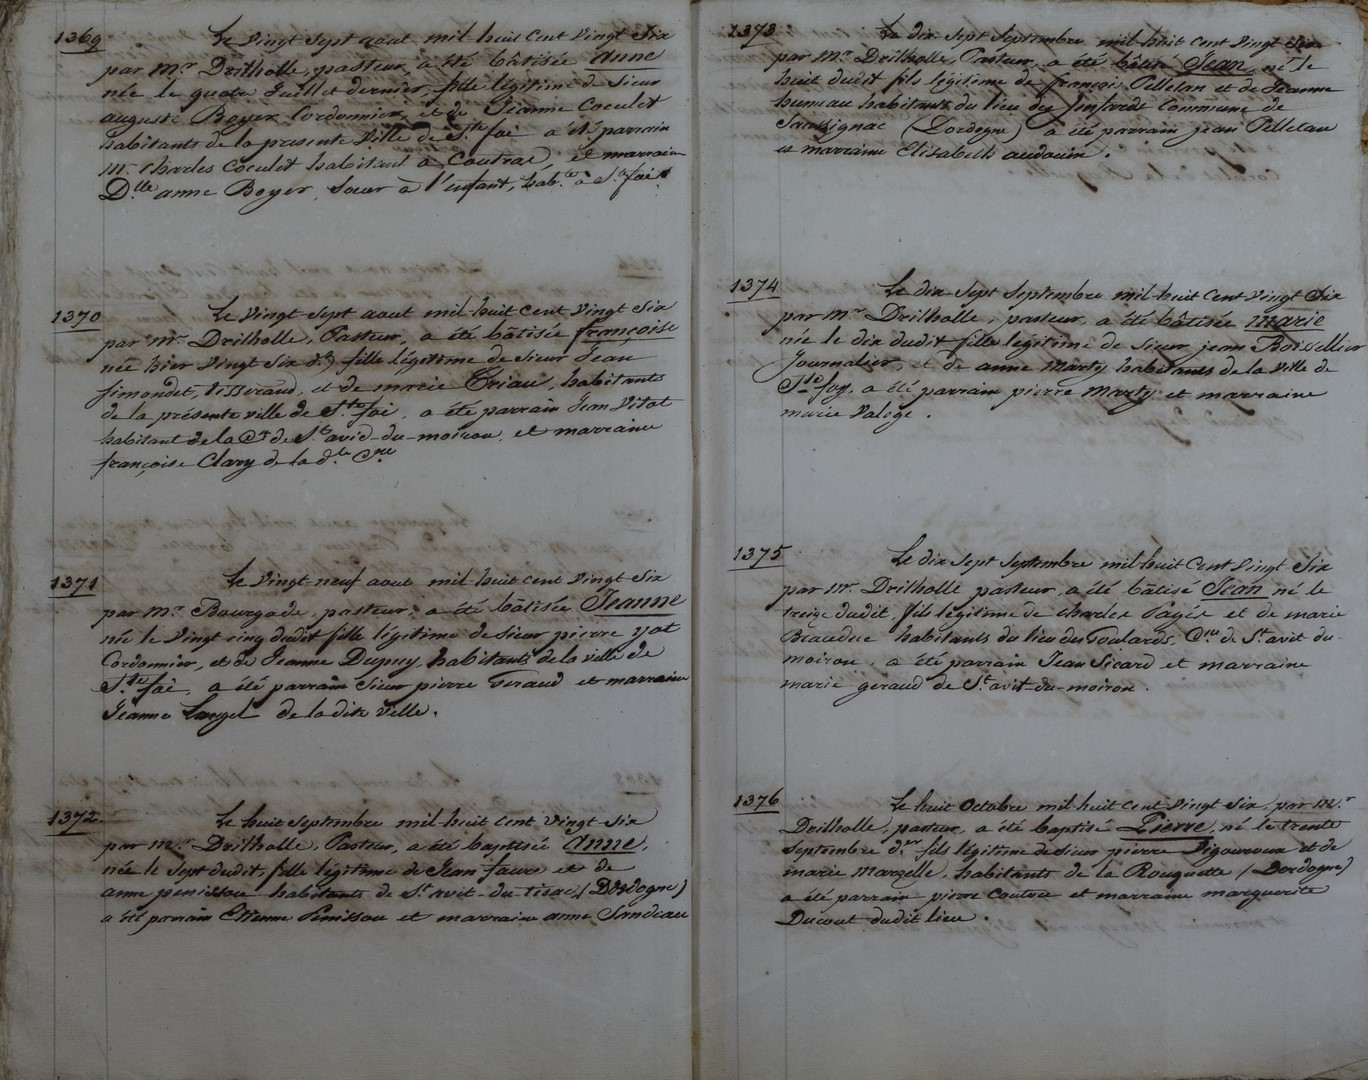 1369
Le Vingt Sept aout mil huit Cent Vingt Six
par Mr Drilholle, pasteur, a été bâtisée Anne
née le quatre Juillet dernier, fille légitime de Sieur
auguste Boyer Cordonnier, et de Jeanne Coculet
habitants de la presente Ville de Ste foi a été parrain
Mr Charles Coculet habitant a Coutras, et marraine
Dlle anne Boyer, Sœur a l'enfant, habte a Ste foi
1370
Le Vingt-Sept aout mil-huit cent Vingt Six
par Mr Drilholle, Pasteur, a été bâtisée françoise
née hier Vingt Six dt, fille légitime de Sieur Jean
Simondet, tisserand, et de marie Triau, habitants
de la présente ville de Ste foi, a été parrain Jean Vitat
habitant de la Cne de St avid-du-moiron, et marraine
françoise Clary de la dte Cne
1371
Le Vingt-neuf aout mil-huit cent Vingt-Six
par Mr Bourgade, pasteur, a été bâtisée Jeanne
née le Vingt cinq dudit fille légitime de Sieur pierre yot
Cordonnier, et de Jeanne Dupuy, habitants de la ville de
Ste foi, a été parrain Sieur pierre Geraud et marraine
Jeanne Laugel de la dite Ville.
1372
Le huit Septembre mil-huit cent Vingt Six
par Mr Drilholle, Pasteur, a été baptisée Anne,
née le Sept dudit, fille légitime de Jean faure et de
anne penissou habitants de St avit-du-tisac, (Dordogne)
a été parrain Etienne Penissou et marraine anne
1373
Le dix Sept Septembre mil-huit cent Vingt Six
par Mr Drilholle, Pasteur, a été bâtisé Jean, né le
huit dudit fils légitime de françois Pelletan et de Jeanne
humeau habitants du lieu des Commune de
Saussignac (Dordogne) a été parrain jean Pelletan
et marraine Elisabeth audouin.
1374
Le dix-Sept Septembre mil-huit Cent Vingt Six
par Mr Drilholle, pasteur, a été bâtisée marie
née le dix dudit fille légitime de Sieur jean Boissellier
Journalier, et de anne Marty, habitants de la Ville de
Ste foy, a été parrain pierre Marty et marraine
marie Valege.
1375
Le dix Sept Septembre mil-huit Cent Vingt Six
par Mr Drilholle pasteur, a été bâtisé Jean né le
treize dudit, fils légitime de Charles Pagés et de marie
habitants du lieu des Cne de St avit du-
moiron, a été parrain Jean Sicard et marraine
marie geraud de St avit-du-moiron.
1376
Le huit Octobre mil-huit cent Vingt Six, par Mr
Drilholle, pasteur, a été baptisé Pierre, né le trente
Septembre der fils légitime de Sieur pierre Vigouroux et de
marie Marzelle, habitants de la Rouquette (Dordogne)
a été parrain pierre Couture et marraine marguerite
Ducout dudit lieu.